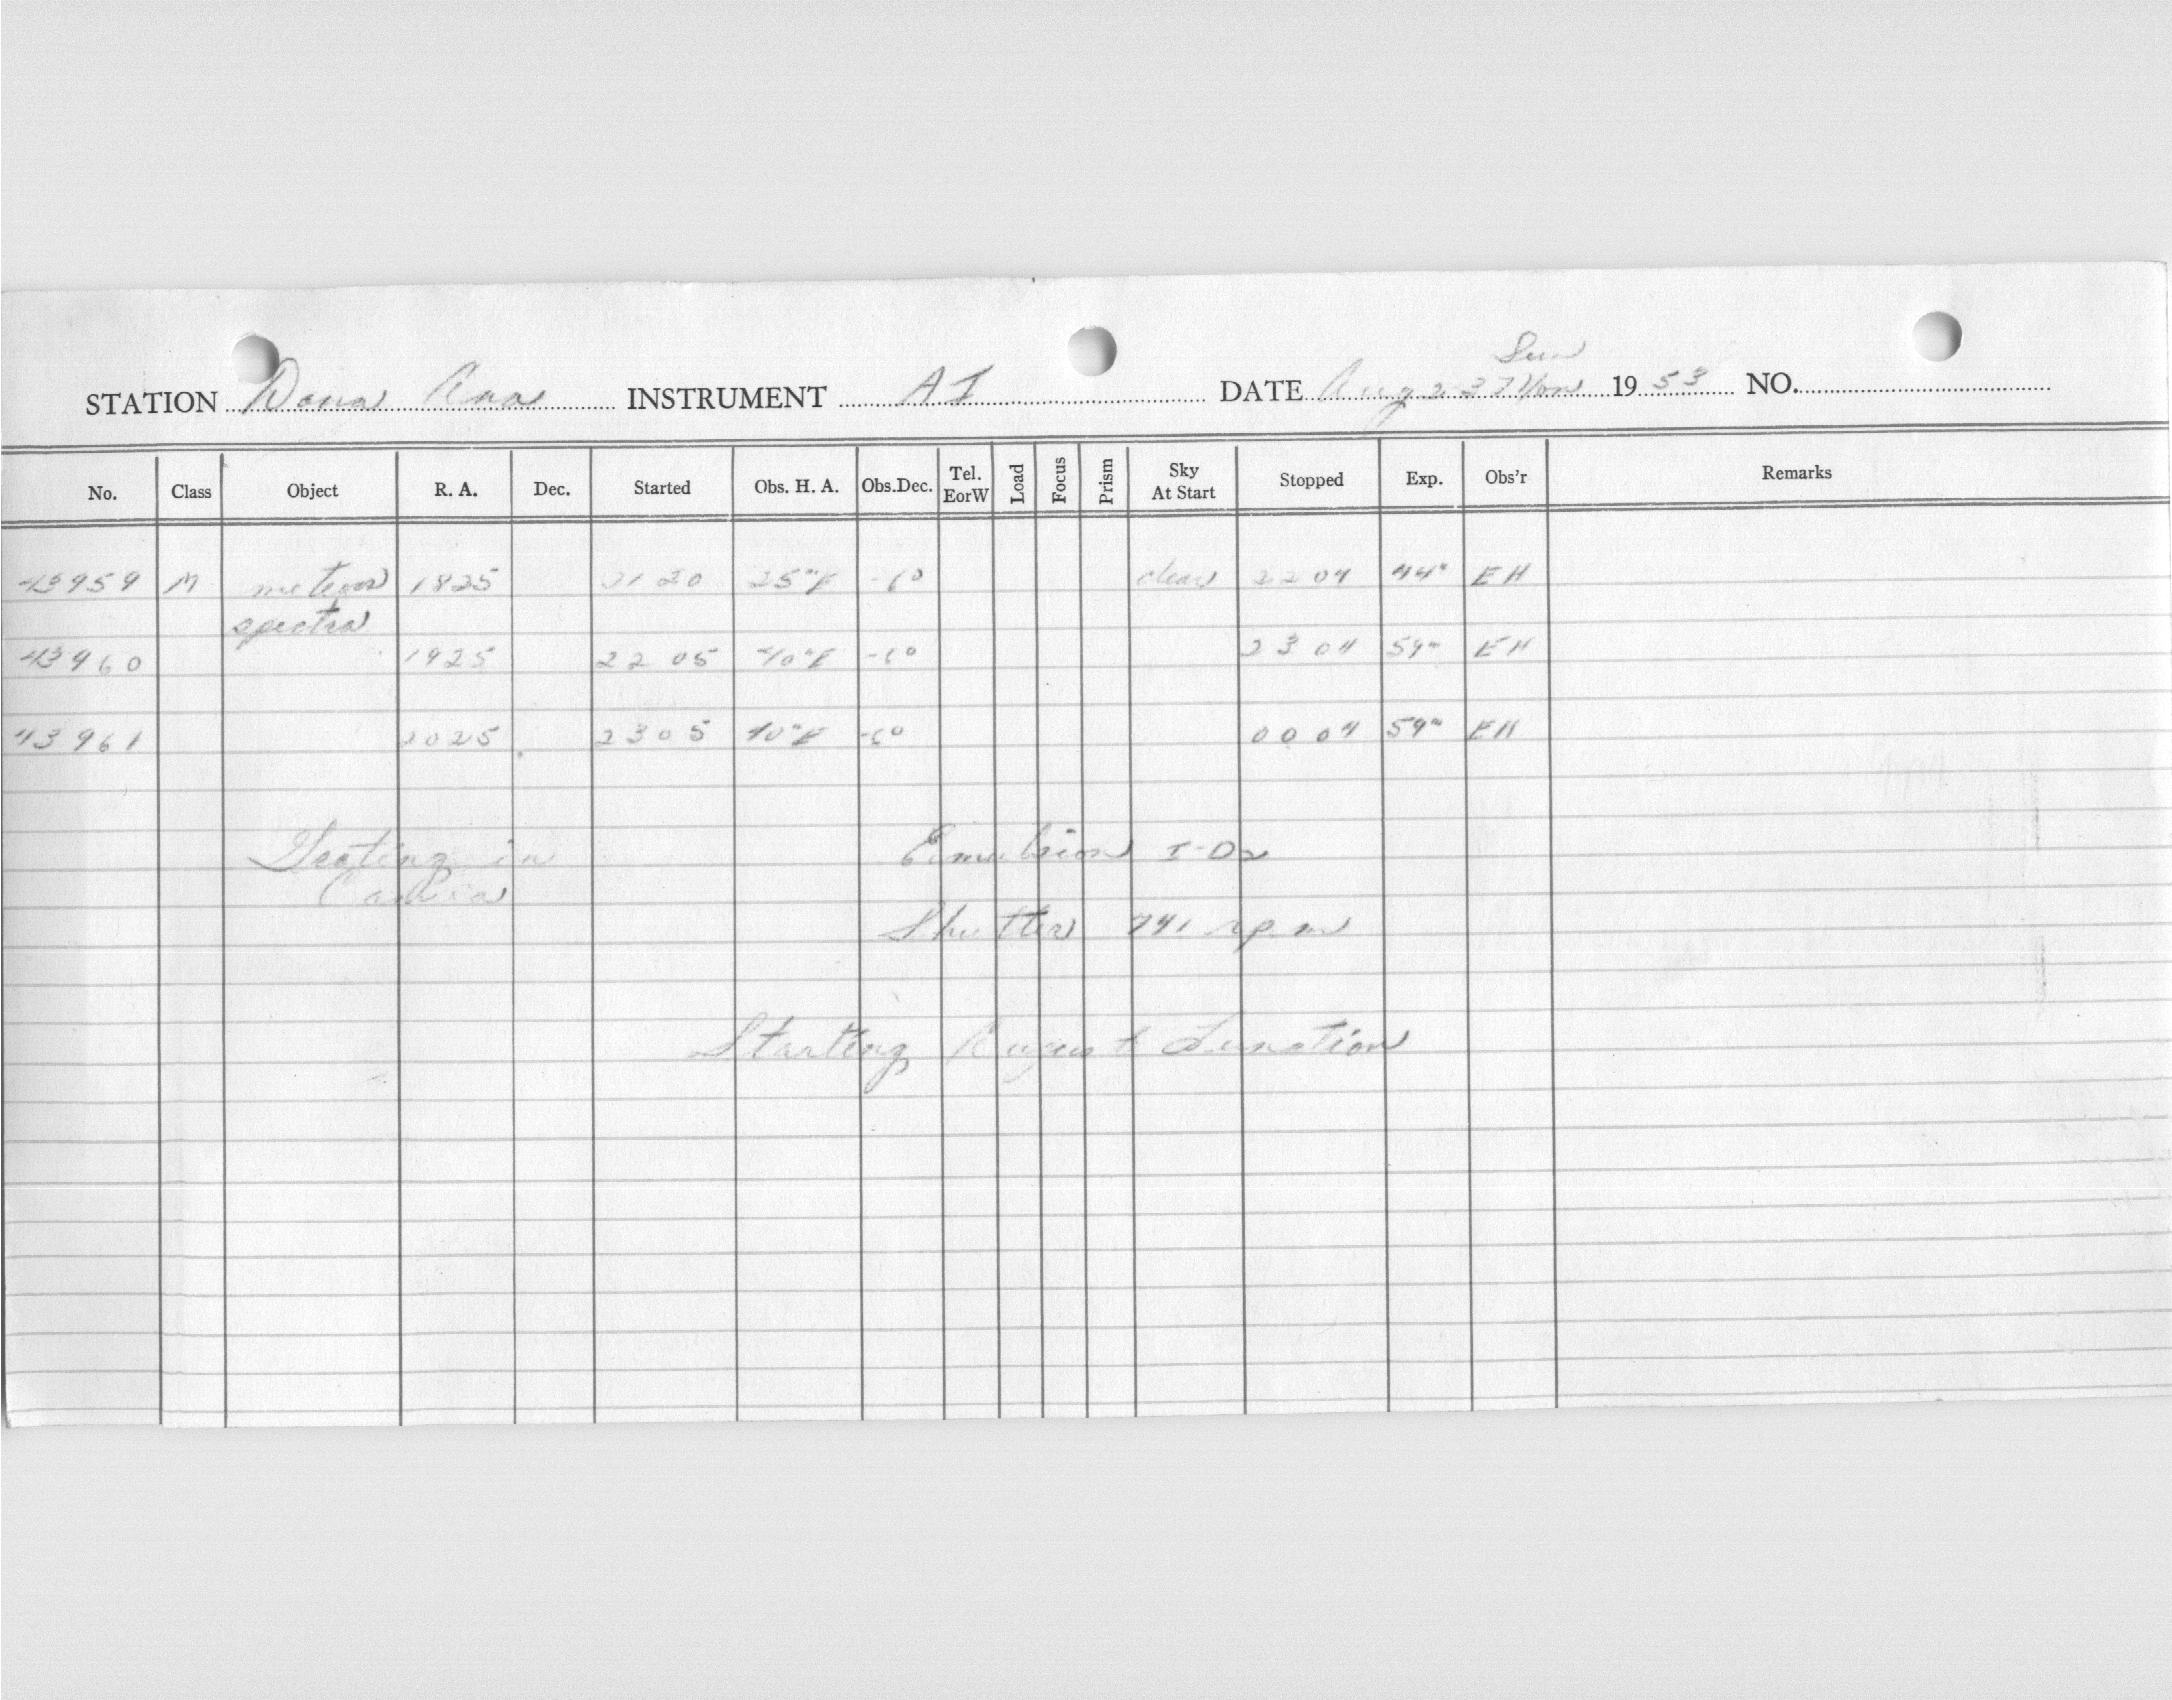 Sun
STATION Dona Ana INSTRUMENT AI DATE Aug 23 Mon 19 53 NO.
No. Class Object R. A. Dec. Started Obs. H. A. Obs.Dec. Tel. EorW Load Focus Prism Sky At Start Stopped Exp. Obs'r Remarks
43959 M meteor 1825 2120 25ᵐE -6° clear 2204 44ᵐ EH
spectra
43960 1925 2205 40ᵐE -6° 2304 59ᵐ EH
43961 2025 2305 40ᵐE -6° 0004 59ᵐ EH
Grating in Emulsion I-D2
Camera
Shutter 741 rpm
Starting August Lunation